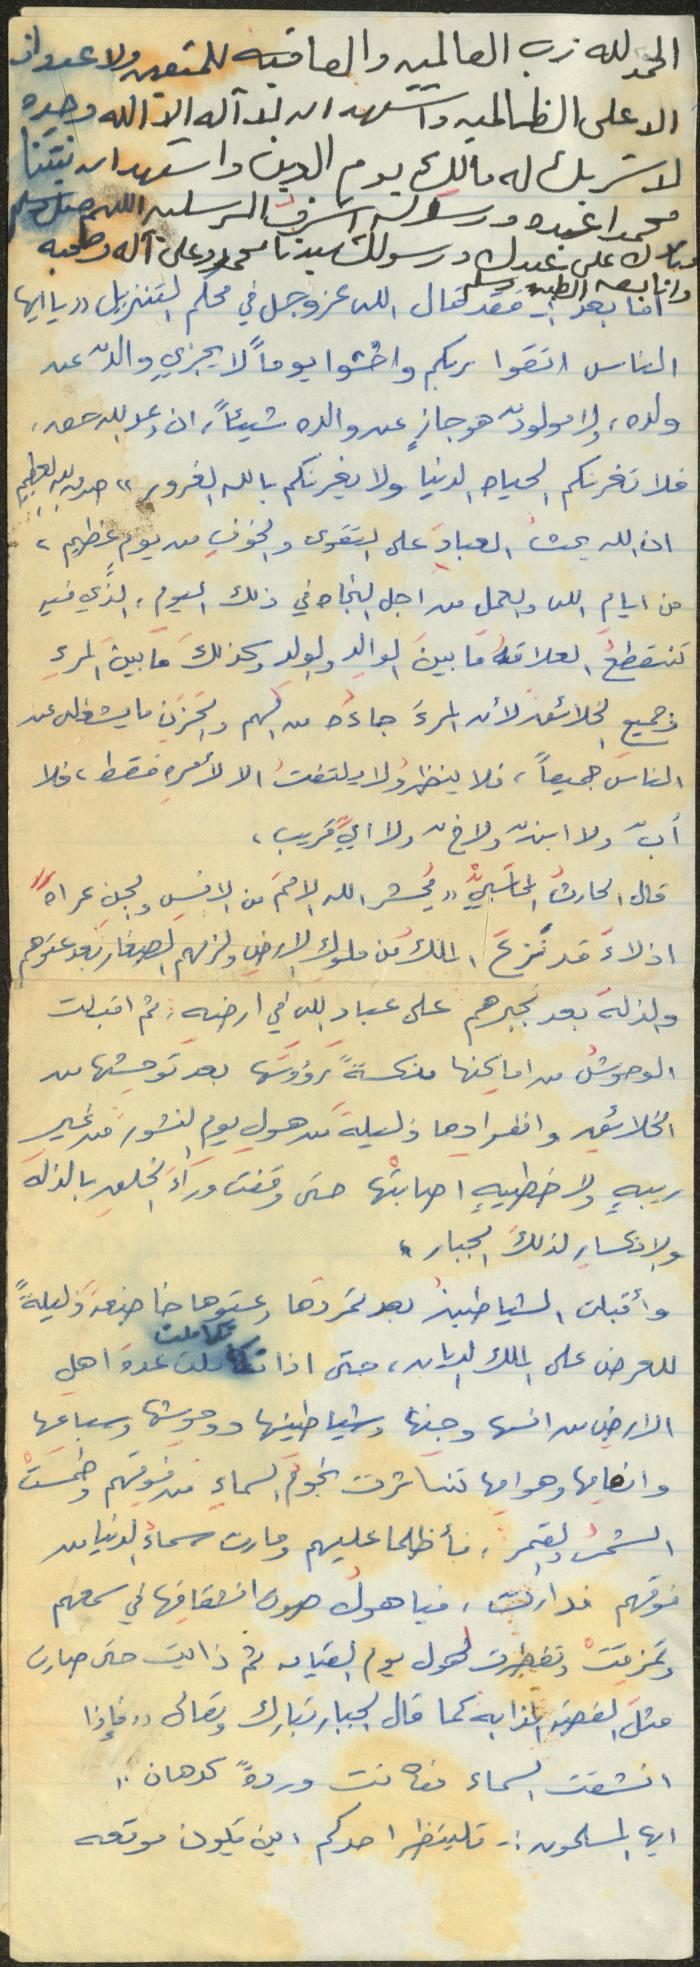 الحمد لله رب العالمين والعاقبة للمتقين ولا عدوان
الا على الظالمين وأشهد ان لا آله الا الله وحده
لا شريك له مالك يوم الدين واشهد ان نبينا
محمداً عبده ورسوله اشرف المرسلين اللهم صل وسلم
وبارك على عبدك ورسولك سيدنا محمد وعلى آله وصحبه
وتابعيه الطيبين وسلم
أما بعد :- فقد قال الله عز وجل في محكم التنزيل «يا ايها
الناس اتقوا ربكم واخشوا يوماً لا يجزي والدٌ عن
ولده، ولا مولودٌ هو جازٍ عن والده شيئاً، ان وعد الله حق،
فلا تغرنكم الحياه الدنيا ولا يغرنكم بالله الغرور» صدق الله العظيم
ان الله يحث العبادَ على التقوى والخوفِ من يومٍ عظيمٍ،
من ايام الله والعمل من اجل النجاه في ذلك اليوم، الذَّي فيهِ
تنقطعُ العلاقةُ مَا بينَ الوالدِ والولدِ وكذلكَ مَا بينَ المرءِ
وجميع الخلائق لأن المرءَ جاءَهُ من الهم والحَزَنِ ما يشغله عن
الناس جميعاً، فلا ينظرُ ولا يلتفتُ الا لأمرهِ فقط، فلا
أبٌ ولا ابنٌ ولا اخٌ ولا ايُّ قريب،
قال الحارثُ المحاسبيُّ «يُحشر الله الاممَ من الانسِ والجنِ عراةً
اذلاءَ قد نُزعَ الملكُ من ملوكِ الارضِ ولزمهم الصغار بعد عتوهم
والذلةَ بعد تجبرهم على عباد الله في ارضه، ثم اقبلت
الوحوشُ من اماكنها منكسةً رؤوسَها بعد توحشها من
الخلائقِ وانفرادها ذليلةً من هولِ يومِ النشور من غير
ريبهٍ ولا خطيبهٍ اصابتْها حتى وقفت وراءَ الخلقِ بالذلة
والانكسارِ لذلكَ الجبار،
وأقبلت الشياطينُ بعد تمردَها وعتوها خاضعةً ذليلةً
للعرض على الملك الديان، حتى اذا تكاملت عدةُ اهلِ
الارضِ من انسها وجِنها وشياطينها ووحوشها وسباعها
وانعامها وهوامها تناثرت نجومُ السماءِ من فوقهم وطُمستْ
الشمسُ والقمرُ، فأظلما عليهم ومارت سماءُ الدنيا من
فوقهم فدارت، فيا هولُ صوت انشقاقِها في سمعهم
وتمزقتْ وتفطرت لهول يوم القيامه ثم ذابت حتى صارت
مثلَ الفضةِ المذابه كما قال الجبار تبارك وتعالى «فإذا
انشقت السماء فكانت وردةً كدهان»
ايها المسلمون :- فلينظر احدكم اين يكون موقعه